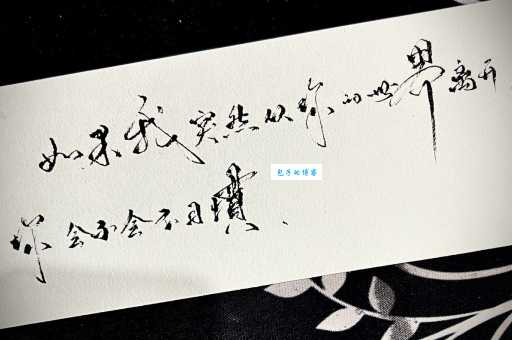 如果我突然从你的世界离开
包子的博客
你会不会不习慣、